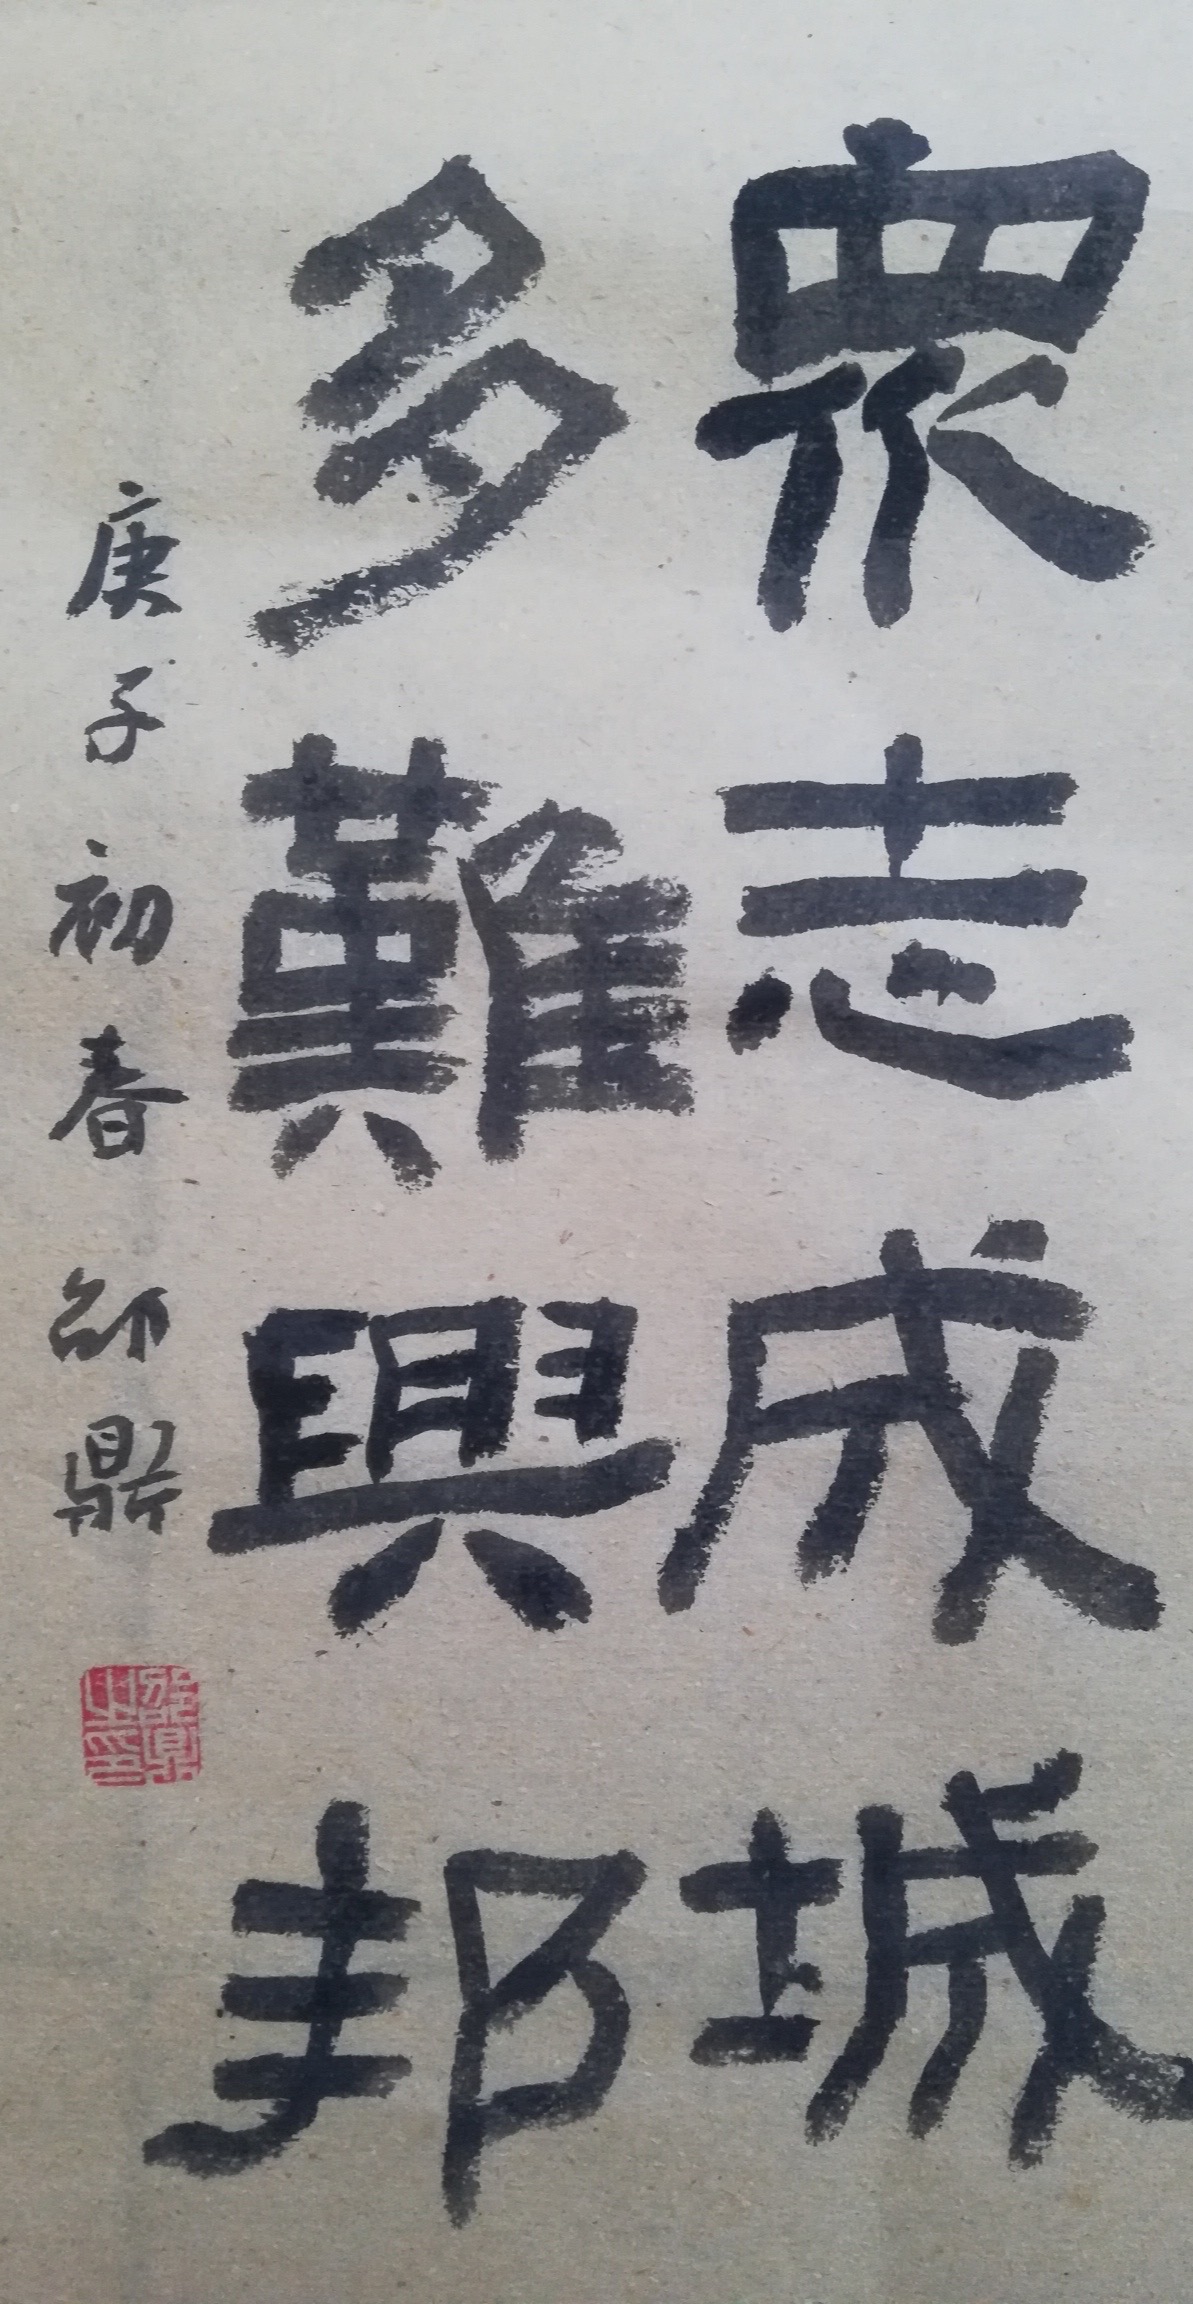 眾志成城
多難興邦
庚子初春邰鼎